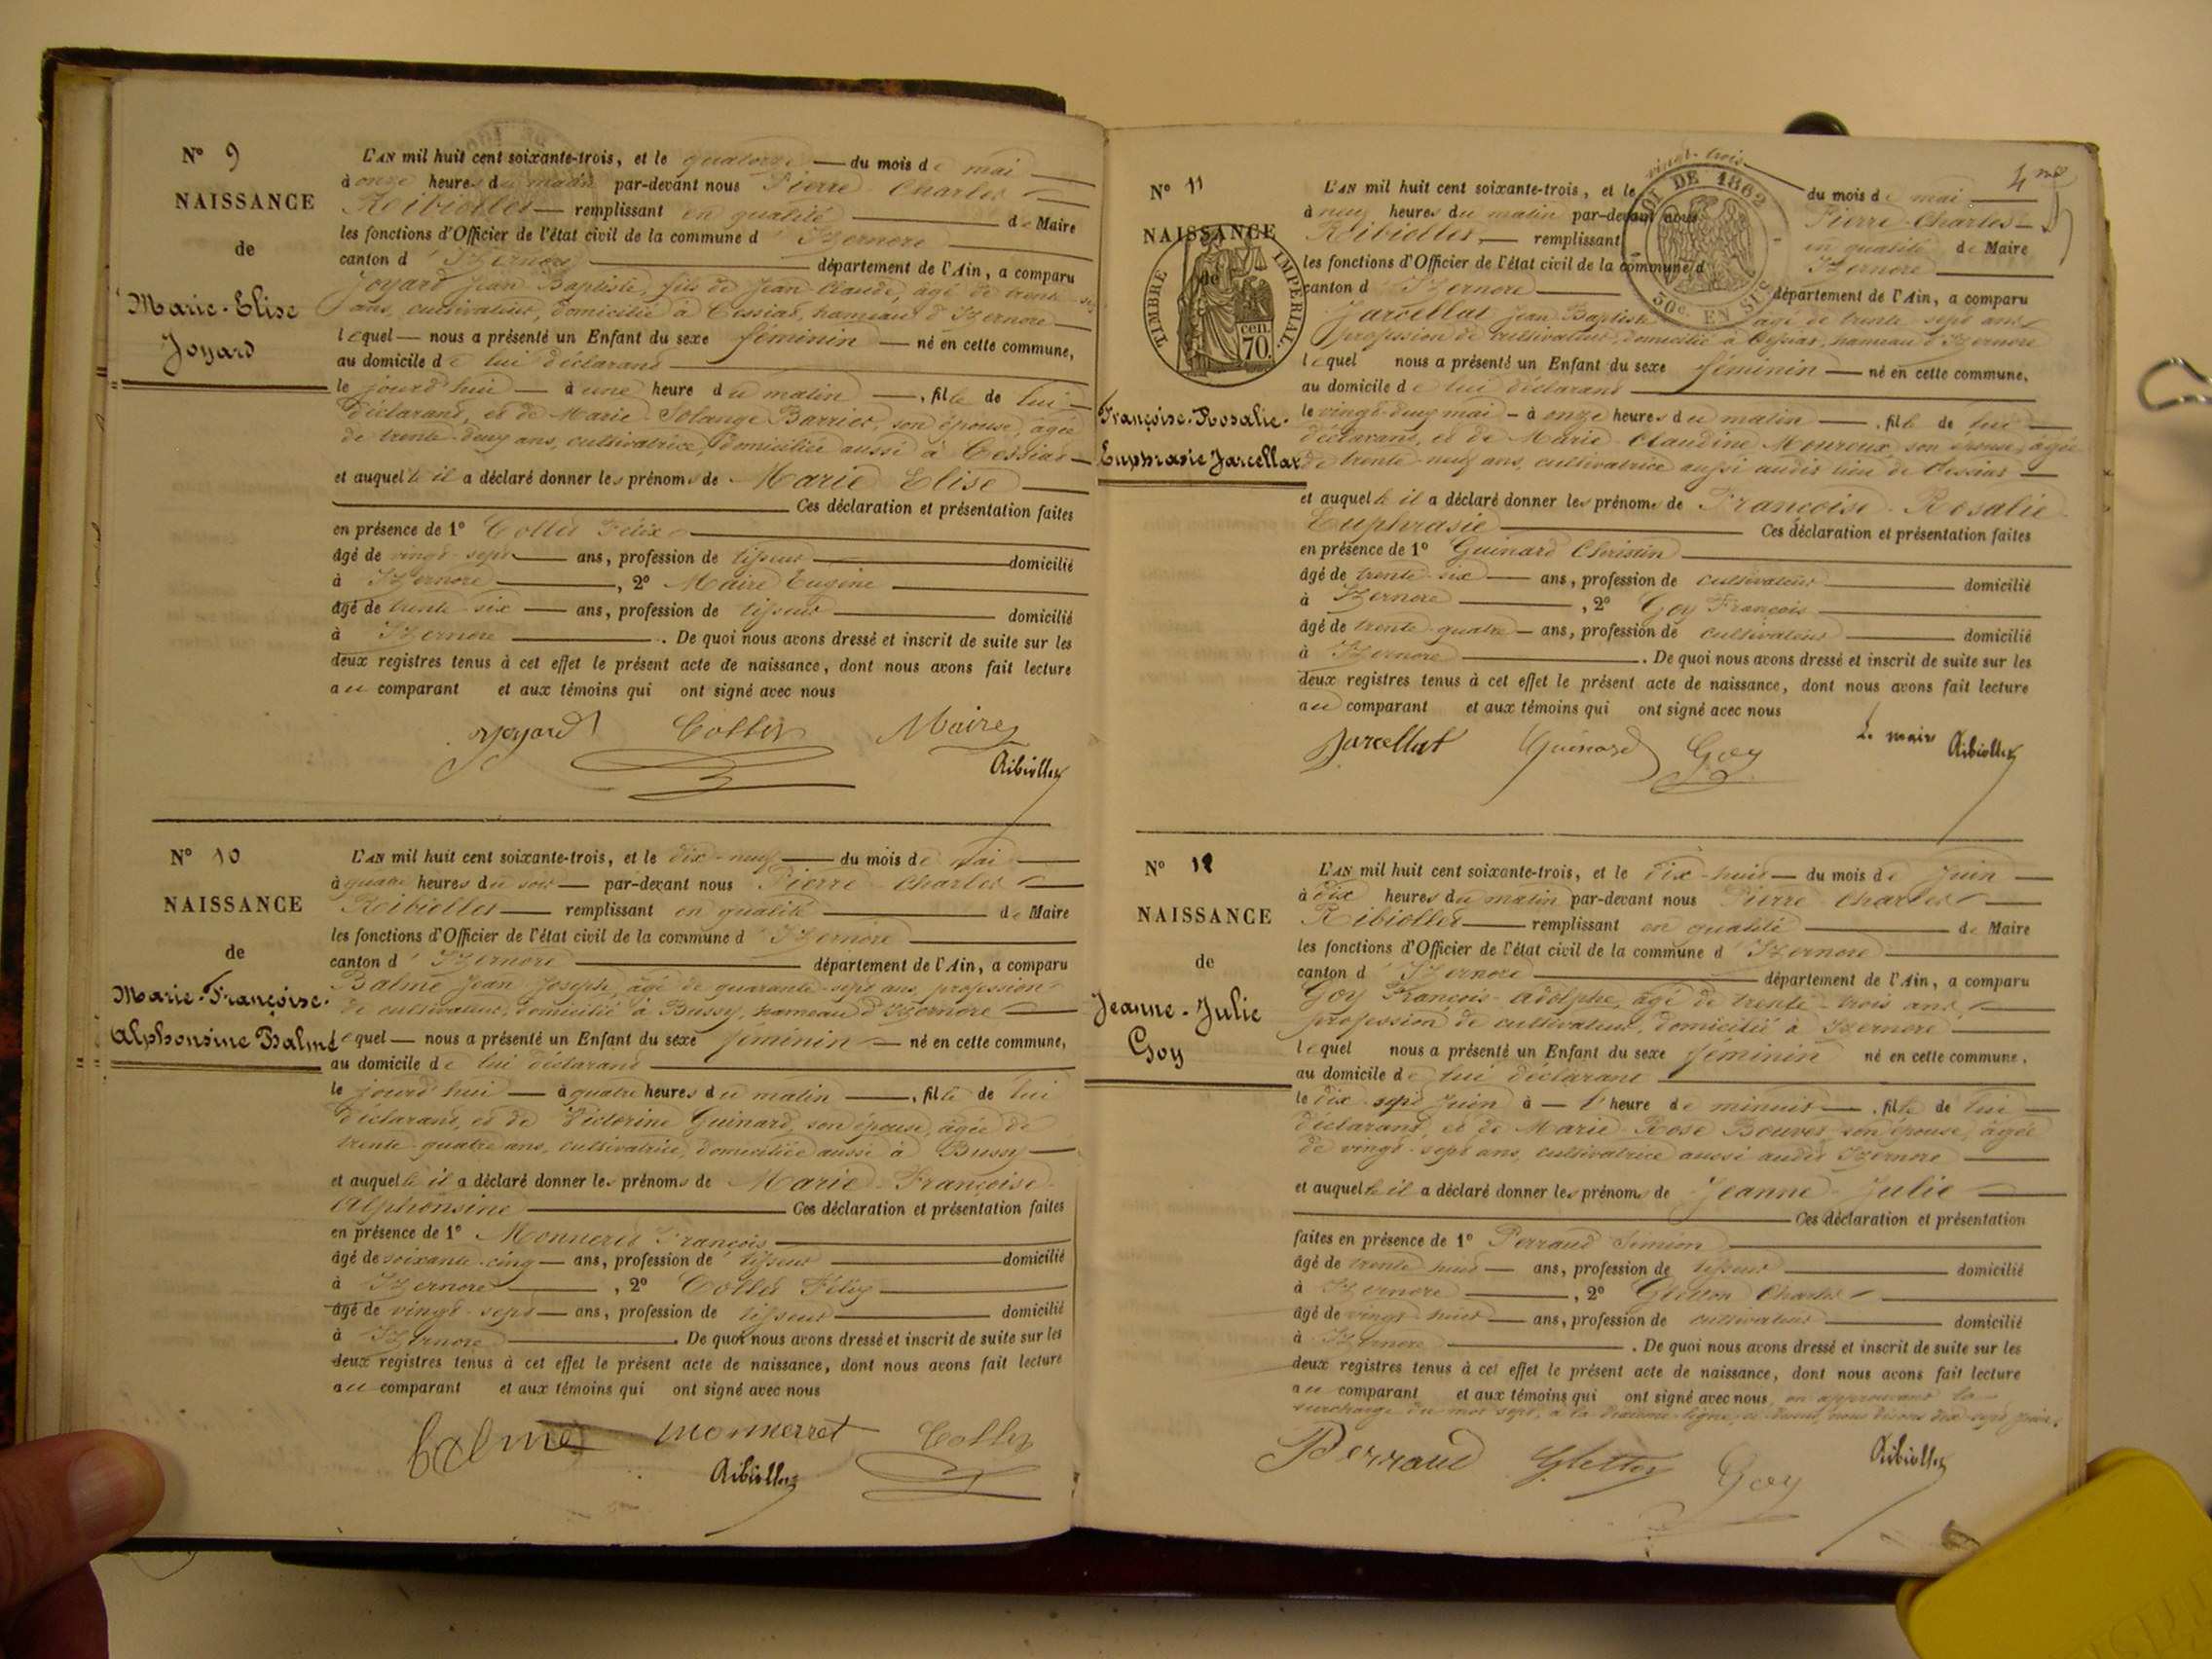 N° 9
NAISSANCE
de
Marie-Elise
Joyard
L'AN mil huit cent soixante-trois, et le quatorze du mois de mai
à onze heures du matin par-devant nous Pierre Charles
Reibiollet remplissant en qualité de Maire
les fonctions d'Officier de l'état civil de la commune d'Izernore
canton d'Izernore département de l'Ain, a comparu
Joyard Jean Baptiste, fils de Jean Claude, âgé de trente
ans, cultivateur, domicilié à Cessiat, hameau d'Izernore
lequel nous a présenté un Enfant du sexe féminin né en cette commune,
au domicile de lui déclarant
le jourd'hui à une heure du matin, fille de lui
déclarant, et de Marie Solange son épouse, âgée
de trente-deux ans, cultivatrice, domiciliée aussi à Cessiat
et auquelle il a déclaré donner les prénoms de Marie Elise
Ces déclaration et présentation faites
en présence de 1° Collet Félix
âgé de vingt-sept ans, profession de tisseur domicilié
à Izernore, 2° Maire Eugène
âgé de trente-six ans, profession de tisseur domicilié
à Izernore. De quoi nous avons dressé et inscrit de suite sur les
deux registres tenus à cet effet le présent acte de naissance, dont nous avons fait lecture
au comparant et aux témoins qui ont signé avec nous
Joyard Collet Maire
Ribiollet
N° 10
NAISSANCE
de
Marie-Françoise-
Alphonsine Balme
L'AN mil huit cent soixante-trois, et le dix-neuf du mois de mai
à quatre heures du soir par-devant nous Pierre Charles
Reibiollet remplissant en qualité de Maire
les fonctions d'Officier de l'état civil de la commune d'Izernore
canton d'Izernore département de l'Ain, a comparu
Balme Jean Joseph, âgé de quarante-sept ans, profession
de cultivateur, domicilié à Bussy, hameau d'Izernore
lequel nous a présenté un Enfant du sexe féminin né en cette commune,
au domicile de lui déclarant
le jourd'hui à quatre heures du matin, fille de lui
déclarant, et de Victorine Guinard, son épouse, âgée de
trente-quatre ans, cultivatrice, domiciliée aussi à Bussy
et auquelle il a déclaré donner les prénoms de Marie Françoise
Alphonsine Ces déclaration et présentation faites
en présence de 1° Monneret François
âgé de soixante-cinq ans, profession de tisseur domicilié
à Izernore, 2° Collet Félix
âgé de vingt-sept ans, profession de tisseur domicilié
à Izernore. De quoi nous avons dressé et inscrit de suite sur les
deux registres tenus à cet effet le présent acte de naissance, dont nous avons fait lecture
au comparant et aux témoins qui ont signé avec nous
balme monnerret Collet
Ribiollet
4me
N° 11
NAISSANCE
de
TIMBRE IMPERIAL
cen.
70.
Françoise-Rosalie-
Euphrasie Jarcellat
LOI DE 1862
50c. EN SUS
vingt-trois
L'AN mil huit cent soixante-trois, et le du mois de mai
à neuf heures du matin par-devant nous Pierre Charles
Reibiollet remplissant en qualité de Maire
les fonctions d'Officier de l'état civil de la commune d'Izernore
canton d'Izernore département de l'Ain, a comparu
Jarcellat Jean Baptiste âgé de trente-sept ans
profession de cultivateur, domicilié à Cessiat, hameau d'Izernore
lequel nous a présenté un Enfant du sexe féminin né en cette commune,
au domicile de lui déclarant
le vingt-deux mai à onze heures du matin, fille de lui
déclarant, et de Marie Claudine Monroux, son épouse, âgée
de trente-neuf ans, cultivatrice aussi audit lieu de Cessiat
et auquelle il a déclaré donner les prénoms de Françoise Rosalie
Euphrasie Ces déclaration et présentation faites
en présence de 1° Guinard Christin
âgé de trente-six ans, profession de cultivateur domicilié
à Izernore, 2° Goy François
âgé de trente-quatre ans, profession de cultivateur domicilié
à Izernore. De quoi nous avons dressé et inscrit de suite sur les
deux registres tenus à cet effet le présent acte de naissance, dont nous avons fait lecture
au comparant et aux témoins qui ont signé avec nous
Jarcellat Guinard Goy Le maire Ribiollet
N° 12
NAISSANCE
de
Jeanne-Julie
Goy
L'AN mil huit cent soixante-trois, et le dix-huit du mois de Juin
à dix heures du matin par-devant nous Pierre Charles
Reibiollet remplissant en qualité de Maire
les fonctions d'Officier de l'état civil de la commune d'Izernore
canton d'Izernore département de l'Ain, a comparu
Goy François-Adolphe, âgé de trente-trois ans
profession de cultivateur, domicilié à Izernore
lequel nous a présenté un Enfant du sexe féminin né en cette commune,
au domicile de lui déclarant
le dix-sept Juin à l'heure de minuit, fille de lui
déclarant, et de Marie Rose Bouvet son épouse, âgée
de vingt-sept ans, cultivatrice aussi audit Izernore
et auquelle il a déclaré donner les prénoms de Jeanne Julie
Ces déclaration et présentation
faites en présence de 1° Perraud Simion
âgé de trente-huit ans, profession de tisseur domicilié
à Izernore, 2° Gletton Charles
âgé de vingt-huit ans, profession de cultivateur domicilié
à Izernore. De quoi nous avons dressé et inscrit de suite sur les
deux registres tenus à cet effet le présent acte de naissance, dont nous avons fait lecture
au comparant et aux témoins qui ont signé avec nous, en approuvant la
surcharge du mot sept, à la dixième ligne, ci dessus, nous disons dix-sept juin.
Perraud Gletton Goy Ribiollet